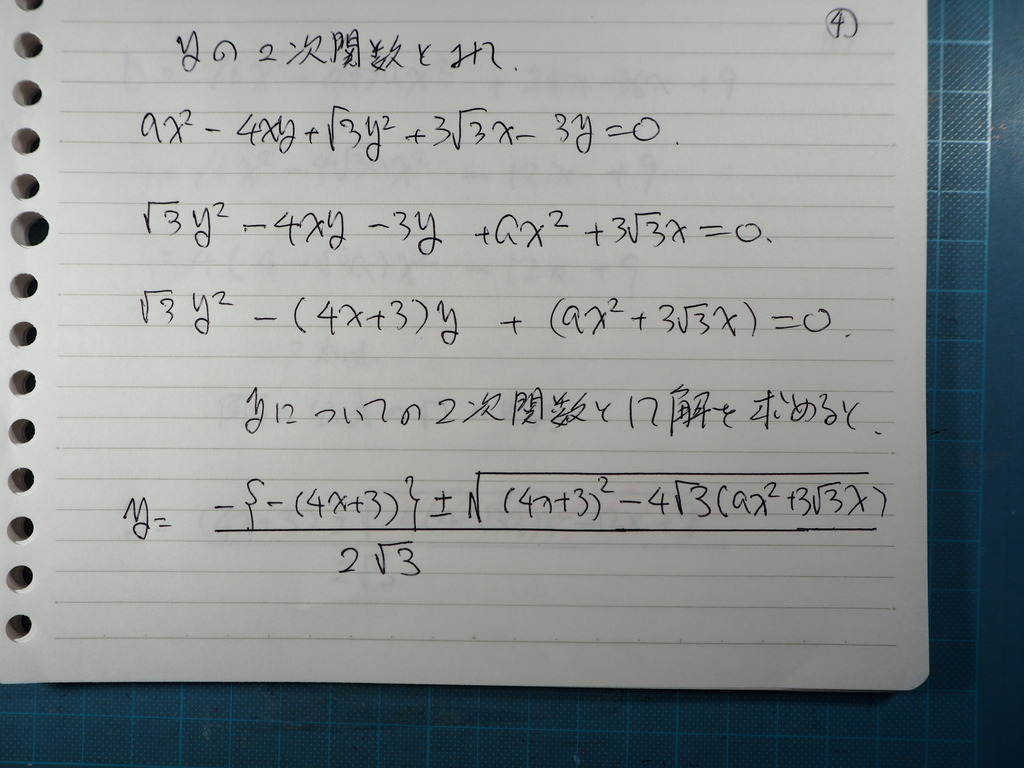 ④
yの2次関数とみて.
ax² - 4xy + √3y² + 3√3x - 3y = 0.
√3y² - 4xy - 3y + ax² + 3√3x = 0.
√3y² - (4x+3)y + (ax² + 3√3x) = 0.
yについての2次関数として解を求めると.
y = \frac{-{-(4x+3)} ± \sqrt{(4x+3)² - 4√3(ax² + 3√3x)}}{2√3}